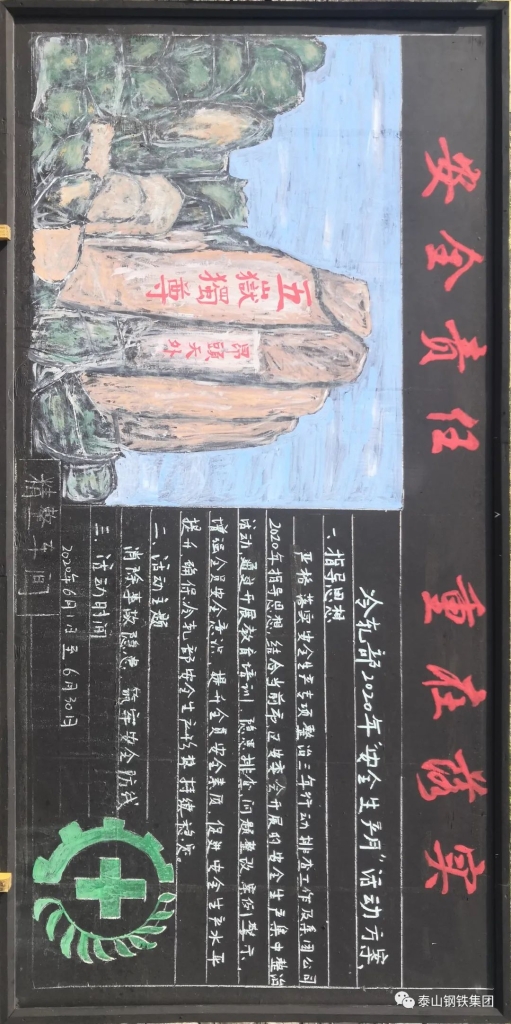 安全责任 重在落实
五嶽獨尊
昂頭天外
冷轧部2020年“安全生产月”活动方案
一、指导思想
严格落实安全生产专项整治三年行动排查工作及集团公司
2020年指导思想,结合当前市卫发委会开展的安全生产集中整治
活动,通过开展教育培训、隐患排查、问题整改、案例警示,
增强全员安全意识,提升全员安全素质,促进安全生产水平
提升,确保冷轧部安全生产形势持续稳定。
二、活动主题
消除事故隐患,筑牢安全防线
三、活动时间
2020年6月1日至6月30日
精整车间
泰山钢铁集团